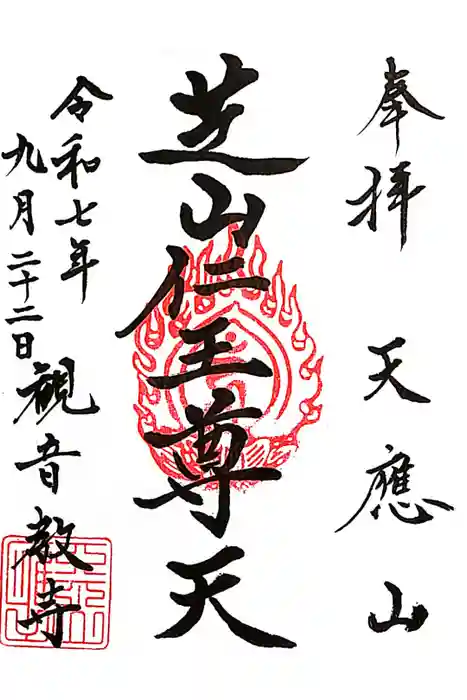 奉拝 天應山
芝山仁王尊天
令和七年
九月二十二日
観音教寺